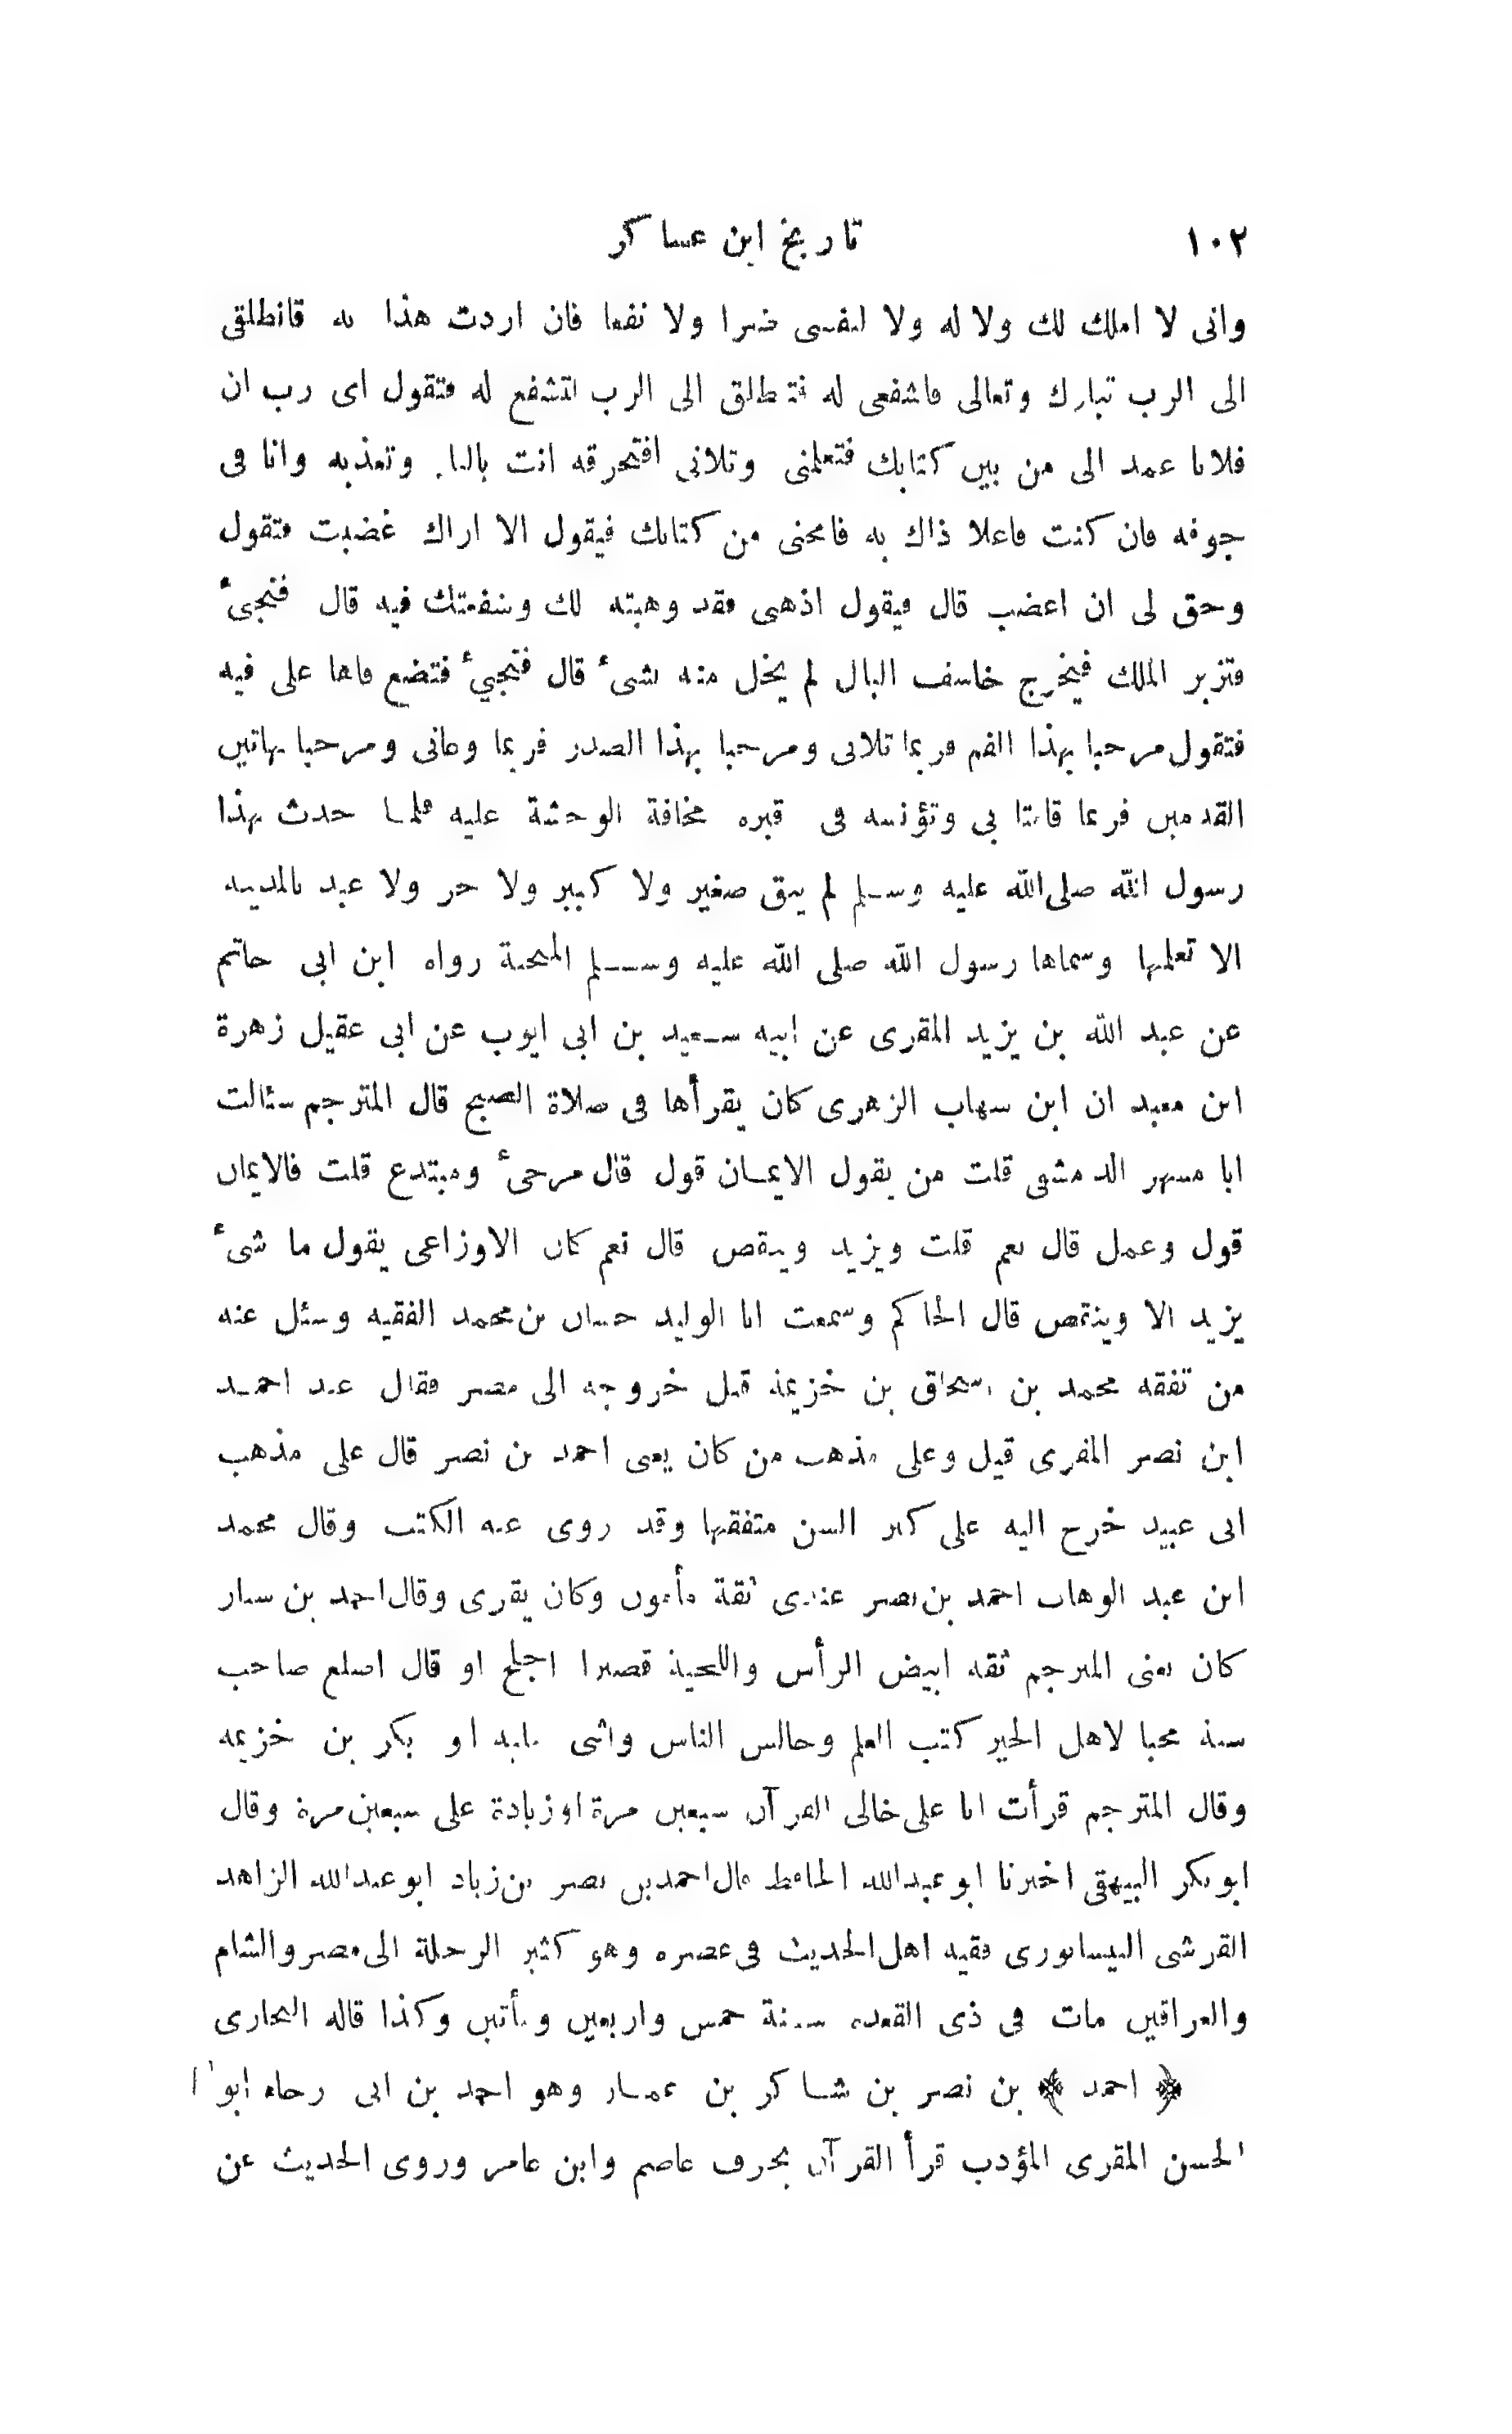 ١٠٢ تاريخ ابن عساكر
وانى لا املك لك ولا له ولا لنفسى ضرا ولا نفعا فان اردت هذا به فانطلقى
الى الرب تبارك وتعالى فاشفعى له فتنطلق الى الرب لتشفع له فتقول اى رب ان
فلانا عمد الى من بين كتابك فتعلمنى وتلانى افتحرقه انت بالنار وتعذبه وانا فى
جوفه فان كنت فاعلا ذاك به فامحنى من كتابك فيقول الا اراك غضبت فتقول
وحق لى ان اغضب قال فيقول اذهبى فقد وهبته لك وشفعتك فيه قال فتجىٔ
فتزبر الملك فيخرج خاسف البال لم يخل منه بشىٔ قال فتجئ فتضع فاها على فيه
فتقول مرحبا بهذا الفم فربما تلانى ومرحبا بهذا الصدر فربما وعانى ومرحبا بهاتين
القدمين فربما قامتا بى وتؤنسه فى قبره مخافة الوحشة عليه فلما حدث بهذا
رسول الله صلى الله عليه وسلم لم يبق صغير ولا كبير ولا حر ولا عبد بالمدينة
الا تعلمها وسماها رسول الله صلى الله عليه وسلم المنجية رواه ابن ابى حاتم
عن عبد الله بن يزيد المقرى عن ابيه سعيد بن ابى ايوب عن ابى عقيل زهرة
ابن معبد ان ابن شهاب الزهرى كان يقرأها فى صلاة الصبح قال المترجم سئالت
ابا مسهر الدمشقى قلت من يقول الايمان قول قال مرجىٔ ومبتدع قلت فالايمان
قول وعمل قال نعم قلت ويزيد وينقص قال نعم كان الاوزاعى يقول ما شىٔ
يزيد الا وينتقص قال الحاكم وسمعت ابا الوليد حسان بن محمد الفقيه وسئل عنه
من تفقه محمد بن اسحاق بن خزيمة قبل خروجه الى مصر فقال عند احمد
ابن نصر المقرى قيل وعلى مذهب من كان يعنى احمد بن نصر قال على مذهب
ابى عبيد خرج اليه على كبر السن متفقها وقد روى عنه الكتب وقال محمد
ابن عبد الوهاب احمد بن نصر عندى ثقة مأمون وكان يقرى وقال احمد بن سيار
كان يعنى المترجم ثقة ابيض الرأس واللحية قصيرا اجلح او قال اصلع صاحب
سنة محبا لاهل الخير كتب العلم وجالس الناس واثنى عليه ابو بكر بن خزيمة
وقال المترجم قرأت انا على خالى القرآن سبعين مرة او زيادة على سبعين مرة وقال
ابو بكر البيهقى اخبرنا ابو عبد الله الحافظ قال احمد بن نصر بن زياد ابو عبد الله الزاهد
القرشى النيسابورى فقيه اهل الحديث فى عصره وهو كثير الرحلة الى مصر والشام
والعراقين مات فى ذى القعدة سنة خمس واربعين ومأتين وكذا قاله البخارى
﴿ احمد ﴾ بن نصر بن شاكر بن عمار وهو احمد بن ابى رجاء ابو
الحسن المقرى المؤدب قرأ القرآن بحرف عاصم وابن عامر وروى الحديث عن